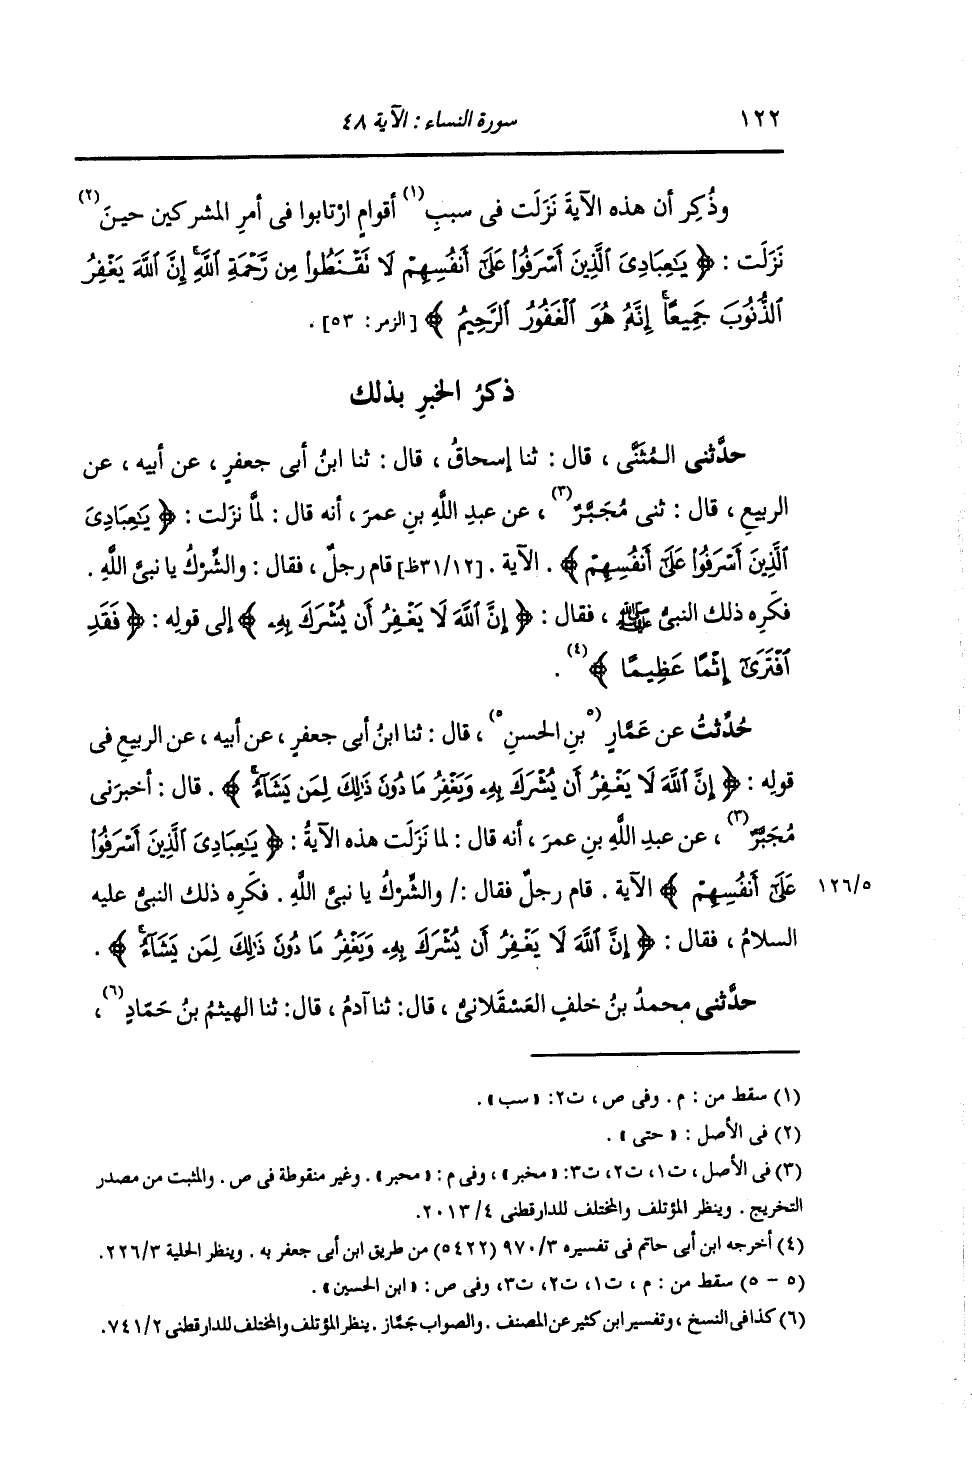 ١٢٢
سورة النساء : الآية ٤٨
وذُكِر أن هذه الآيةَ نَزَلَت فى سببِ(١) أقوامٍ ارْتابوا فى أمرِ المشركين حينَ(٢)
نَزَلَت : ﴿ يَٰعِبَادِىَ ٱلَّذِينَ أَسْرَفُوا۟ عَلَىٰٓ أَنفُسِهِمْ لَا نَقْنَطُوا۟ مِن رَّحْمَةِ ٱللَّهِۚ إِنَّ ٱللَّهَ يَغْفِرُ
ٱلذُّنُوبَ جَمِيعًاۚ إِنَّهُۥ هُوَ ٱلْغَفُورُ ٱلرَّحِيمُ ﴾ [الزمر: ٥٣] .
ذكرُ الخبرِ بذلك
حدَّثنى المُثَنَّى ، قال : ثنا إسحاقُ ، قال : ثنا ابنُ أبى جعفرٍ ، عن أبيه ، عن
الربيعِ ، قال : ثنى مُجَبَّرٌ(٣) ، عن عبدِ اللَّهِ بنِ عمرَ ، أنه قال : لمَّا نزَلت : ﴿ يَٰعِبَادِىَ
ٱلَّذِينَ أَسْرَفُوا۟ عَلَىٰٓ أَنفُسِهِمْ ﴾ . الآية . [٣١/١٢ظ] قام رجلٌ ، فقال : والشِّرْكُ يا نبىَّ اللَّهِ .
فكَرِه ذلك النبىُّ ﷺ ، فقال : ﴿ إِنَّ ٱللَّهَ لَا يَغْفِرُ أَن يُشْرَكَ بِهِۦ ﴾ إلى قولِه : ﴿ فَقَدِ
ٱفْتَرَىٰٓ إِثْمًا عَظِيمًا ﴾(٤) .
حُدِّثتُ عن عَمَّارٍ (٥بنِ الحسنِ٥) ، قال : ثنا ابنُ أبى جعفرٍ ، عن أبيه ، عن الربيعِ فى
قولِه : ﴿ إِنَّ ٱللَّهَ لَا يَغْفِرُ أَن يُشْرَكَ بِهِۦ وَيَغْفِرُ مَا دُونَ ذَٰلِكَ لِمَن يَشَآءُۚ ﴾ . قال : أخبرَنى
مُجَبَّرٌ(٣) ، عن عبدِ اللَّهِ بنِ عمرَ ، أنه قال : لما نَزَلَت هذه الآيةُ : ﴿ يَٰعِبَادِىَ ٱلَّذِينَ أَسْرَفُوا۟
عَلَىٰٓ أَنفُسِهِمْ ﴾ الآية . قام رجلٌ فقال :/ والشِّرْكُ يا نبىَّ اللَّهِ . فكَرِه ذلك النبىُّ عليه
١٢٦/٥
السلامُ ، فقال : ﴿ إِنَّ ٱللَّهَ لَا يَغْفِرُ أَن يُشْرَكَ بِهِۦ وَيَغْفِرُ مَا دُونَ ذَٰلِكَ لِمَن يَشَآءُۚ ﴾ .
حدَّثنى محمدُ بنُ خلفٍ العَسْقَلانىُّ ، قال: ثنا آدمُ ، قال: ثنا الهيثمُ بنُ حَمَّادٍ(٦) ،
(١) سقط من : م . وفى ص ، ت٢: « سب » .
(٢) فى الأصل : « حتى » .
(٣) فى الأصل ، ت١، ت٢، ت٣: « مخبر » ، وفى م : « محبر » . وغير منقوطة فى ص . والمثبت من مصدر
التخريج . وينظر المؤتلف والمختلف للدارقطنى ٤/ ٢٠١٣.
(٤) أخرجه ابن أبى حاتم فى تفسيره ٩٧٠/٣ (٥٤٢٢) من طريق ابن أبى جعفر به . وينظر الحلية ٢٢٦/٣.
(٥ - ٥) سقط من : م ، ت١، ت٢، ت٣، وفى ص : « ابن الحسين » .
(٦) كذا فى النسخ ، وتفسير ابن كثير عن المصنف . والصواب جَمَّاز . ينظر المؤتلف والمختلف للدارقطنى ٧٤١/٢.